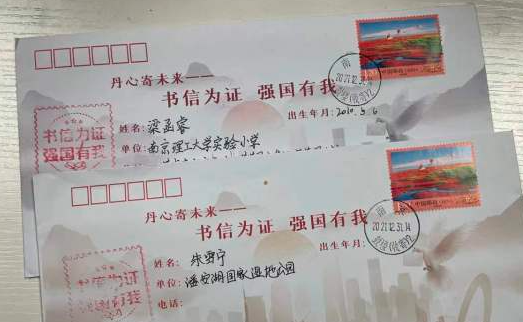 丹心寄未来——
书信为证 强国有我
书信为证
强国有我
姓名：梁函睿
出生年月：2010.5.6
单位：南京理工大学实验小学
中国邮政
丹心寄未来——
书信为证 强国有我
中国邮政
2021.12.31.14
书信为证
强国有我
姓名：
出生年月：
单位：潘安湖国家湿地公园
电话：